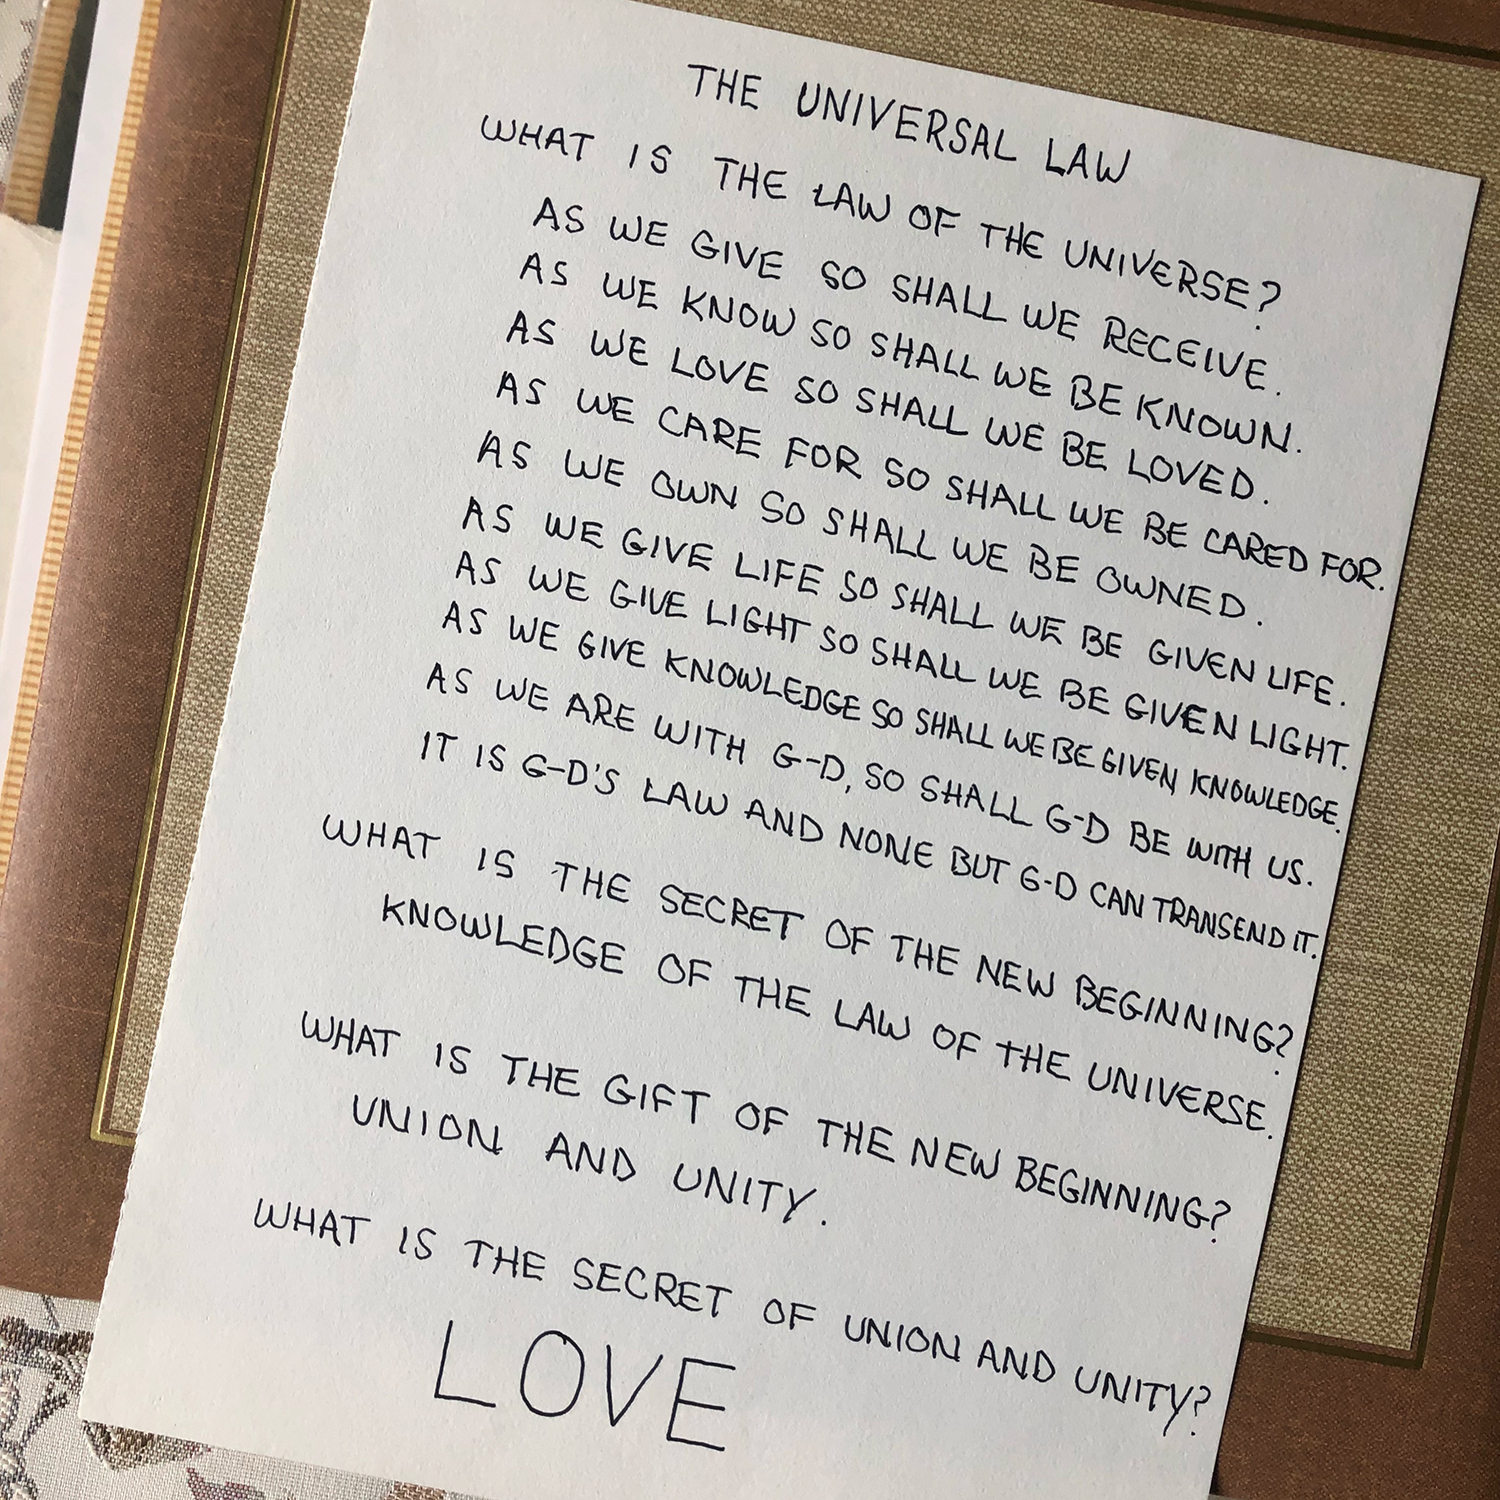 THE UNIVERSAL LAW
WHAT IS THE LAW OF THE UNIVERSE?
AS WE GIVE SO SHALL WE RECEIVE.
AS WE KNOW SO SHALL WE BE KNOWN.
AS WE LOVE SO SHALL WE BE LOVED.
AS WE CARE FOR SO SHALL WE BE CARED FOR.
AS WE OWN SO SHALL WE BE OWNED.
AS WE GIVE LIFE SO SHALL WE BE GIVEN LIFE.
AS WE GIVE LIGHT SO SHALL WE BE GIVEN LIGHT.
AS WE GIVE KNOWLEDGE SO SHALL WE BE GIVEN KNOWLEDGE.
AS WE ARE WITH G-D, SO SHALL G-D BE WITH US.
IT IS G-D'S LAW AND NONE BUT G-D CAN TRANSEND IT.
WHAT IS THE SECRET OF THE NEW BEGINNING?
KNOWLEDGE OF THE LAW OF THE UNIVERSE.
WHAT IS THE GIFT OF THE NEW BEGINNING?
UNION AND UNITY.
WHAT IS THE SECRET OF UNION AND UNITY?
LOVE